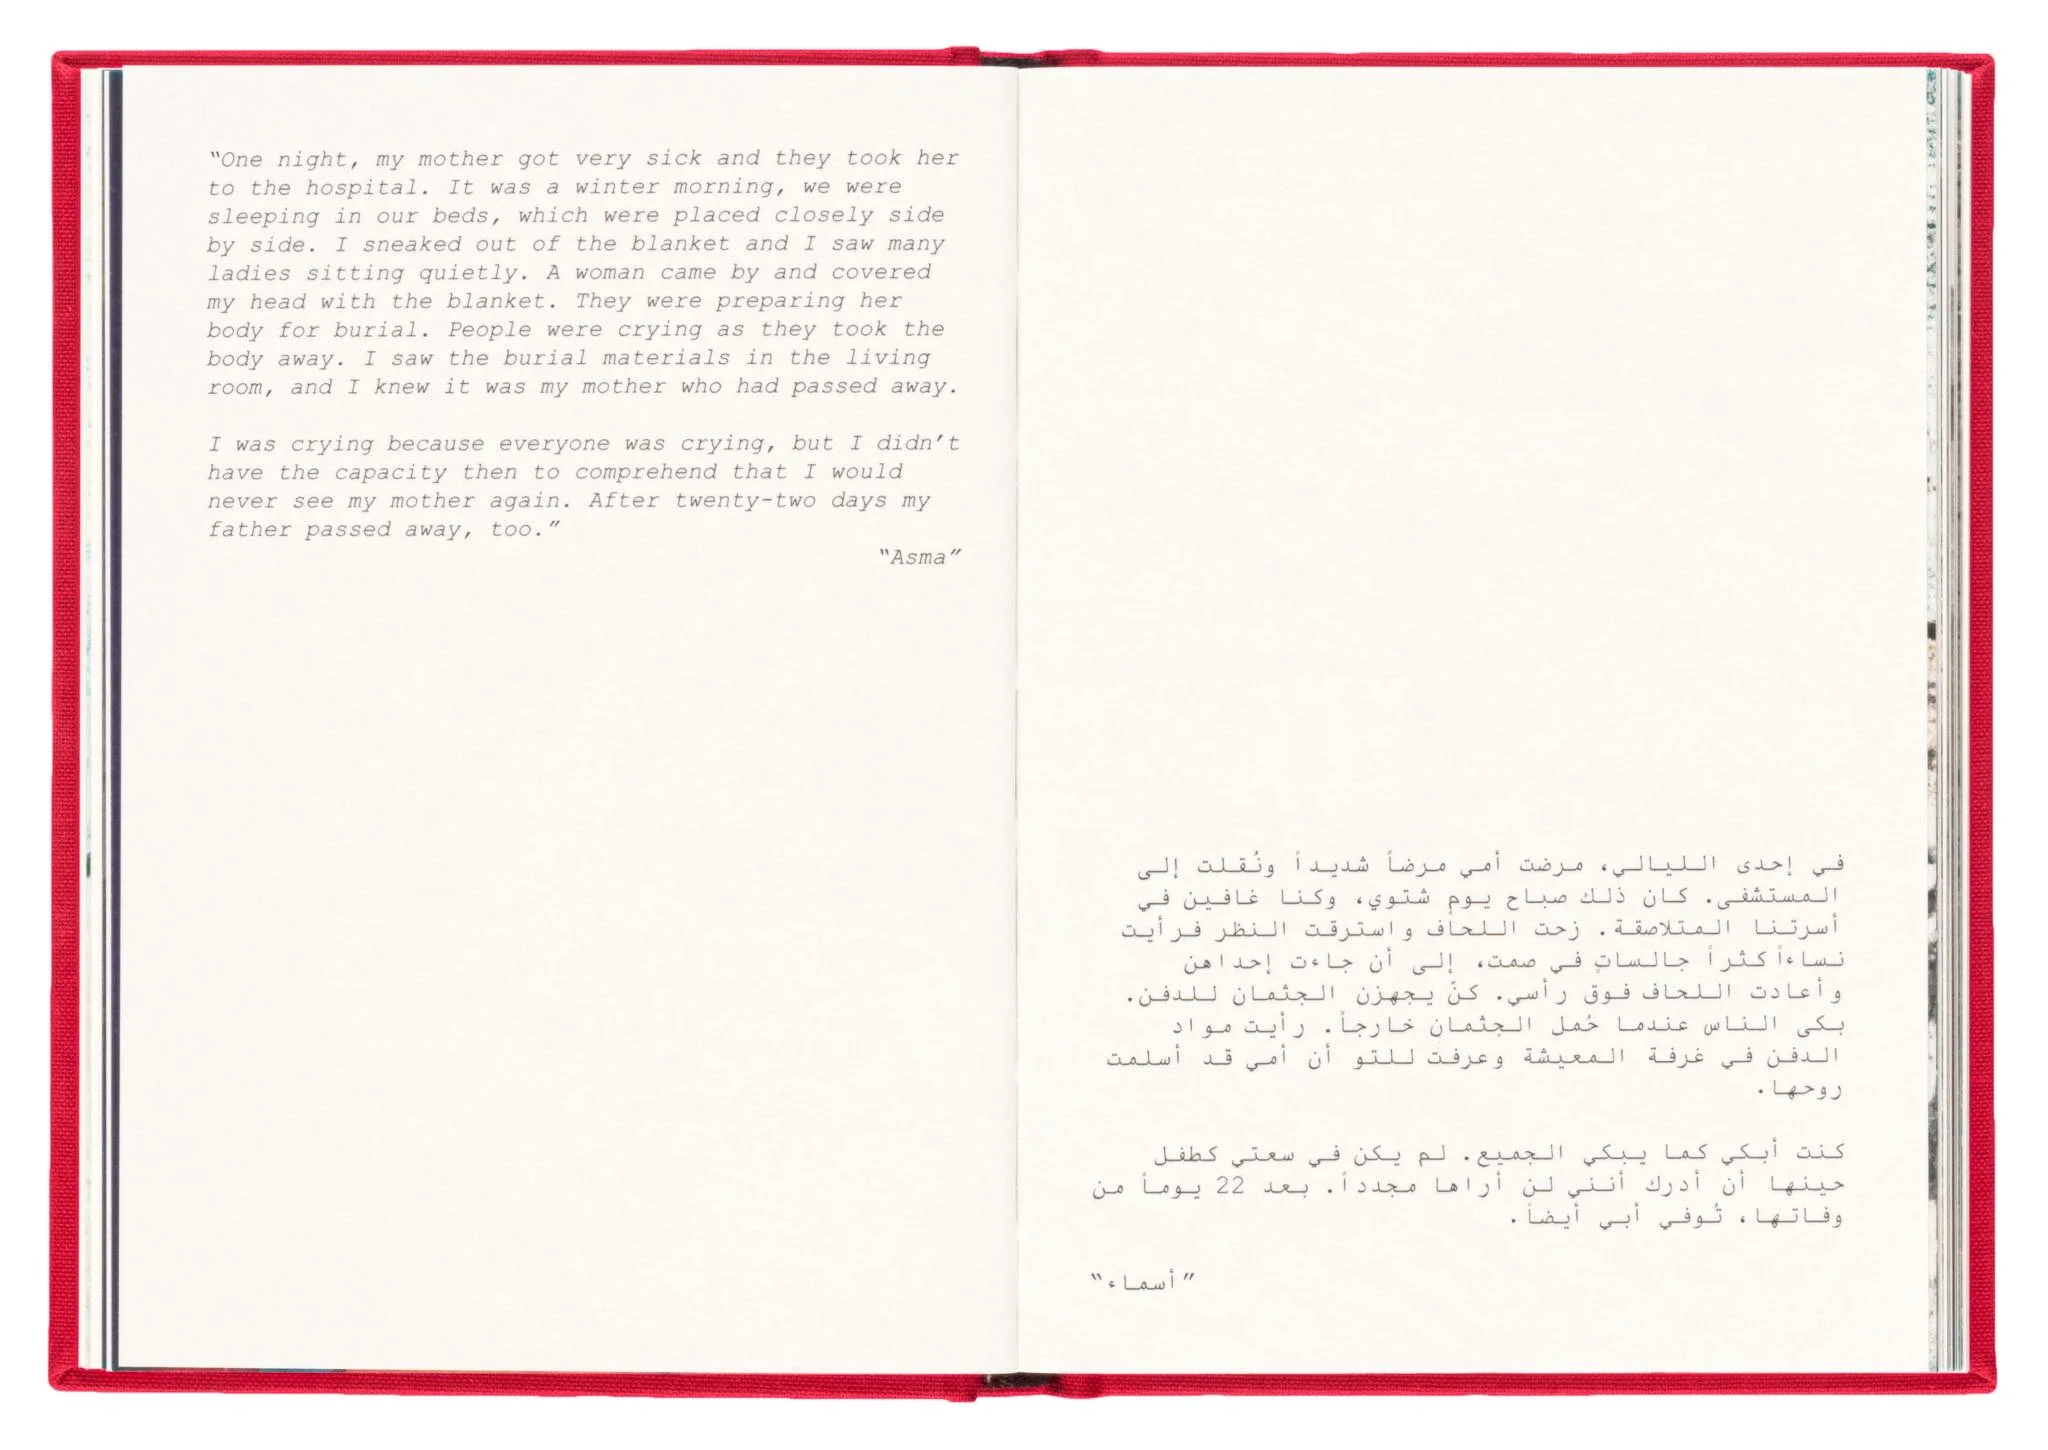 “One night, my mother got very sick and they took her
to the hospital. It was a winter morning, we were
sleeping in our beds, which were placed closely side
by side. I sneaked out of the blanket and I saw many
ladies sitting quietly. A woman came by and covered
my head with the blanket. They were preparing her
body for burial. People were crying as they took the
body away. I saw the burial materials in the living
room, and I knew it was my mother who had passed away.
I was crying because everyone was crying, but I didn’t
have the capacity then to comprehend that I would
never see my mother again. After twenty-two days my
father passed away, too.”
“Asma”
في إحدى الليالي، مرضت أمي مرضاً شديداً ونُقلت إلى
المستشفى. كان ذلك صباح يومٍ شتوي، وكنا غافين في
أسرتنا المتلاصقة. زحت اللحاف واسترقت النظر فرأيت
نساءاً كثراً جالساتٍ في صمت، إلى أن جاءت إحداهن
وأعادت اللحاف فوق رأسي. كنَّ يجهزن الجثمان للدفن.
بكى الناس عندما حُمل الجثمان خارجاً. رأيت مواد
الدفن في غرفة المعيشة وعرفت للتو أن أمي قد أسلمت
روحها.
كنت أبكي كما يبكي الجميع. لم يكن في سعتي كطفل
حينها أن أدرك أنني لن أراها مجدداً. بعد 22 يوماً من
وفاتها، تُوفي أبي أيضاً.
”أسماء“